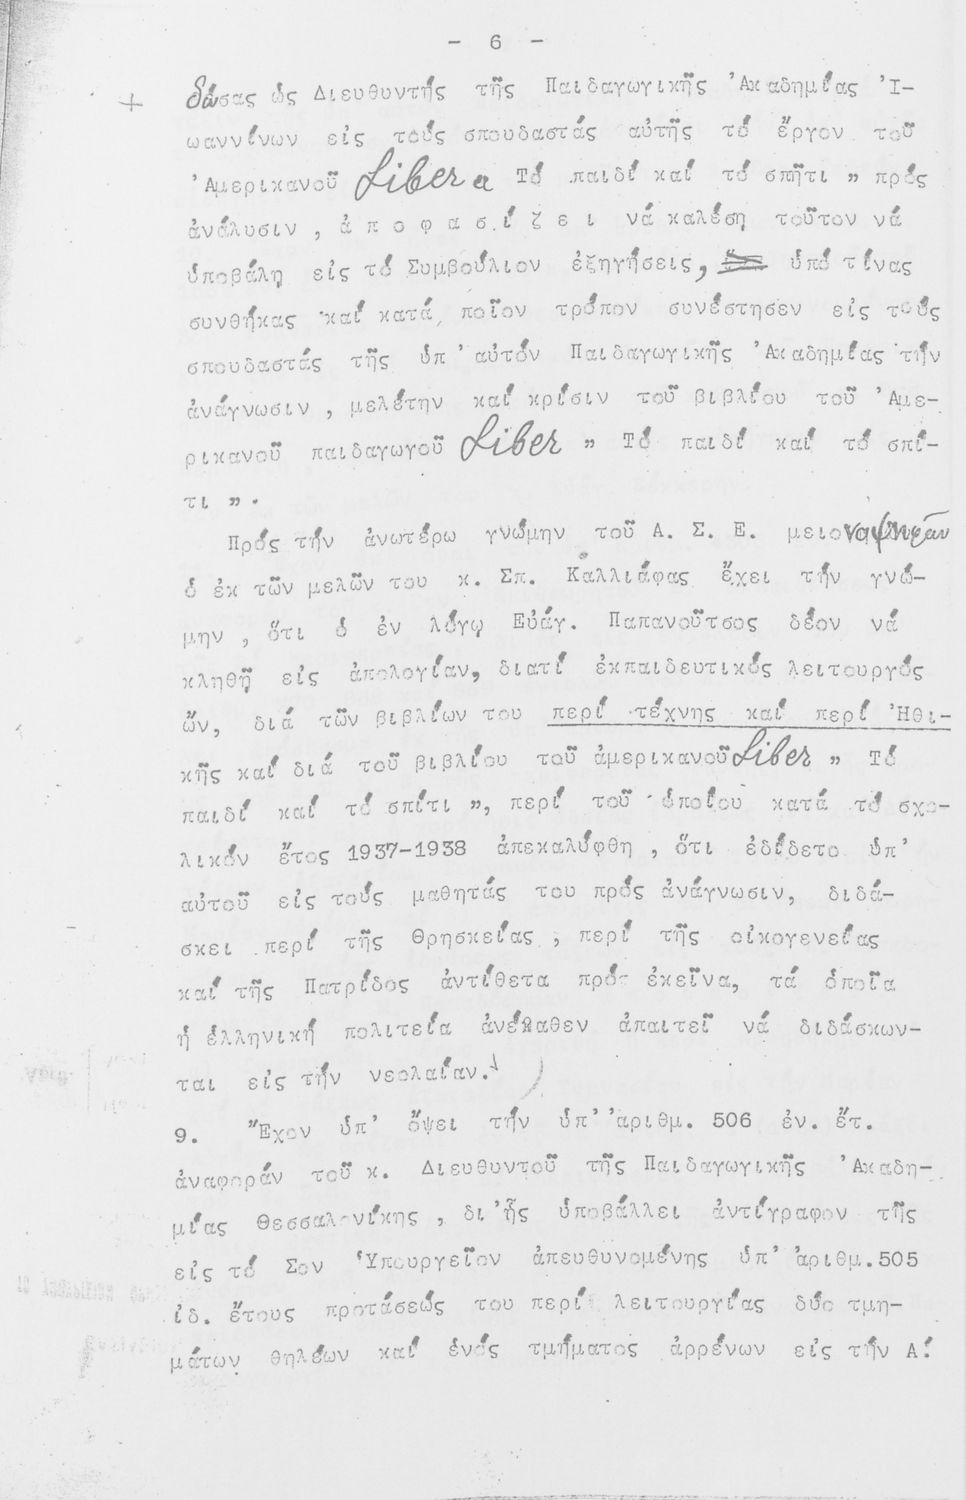 - 6 -
δώσας ὡς Διευθυντής τῆς Παιδαγωγικῆς Ἀκαδημίας Ἰ-
ωαννίνων εἰς τούς σπουδαστάς αὐτῆς τό ἔργον τοῦ
Ἀμερικανοῦ Liber „ Τό παιδί καί τό σπῆτι „ πρός
ἀνάλυσιν , ἀ π ο φ α σ ί ζ ε ι νά καλέση τοῦτον νά
ὑποβάλη εἰς τό Συμβούλιον ἐξηγήσεις, ὑπό τίνας
συνθήκας καί κατά ποῖον τρόπον συνέστησεν εἰς τούς
σπουδαστάς τῆς ὑπ' αὐτόν Παιδαγωγικῆς Ἀκαδημίας τήν
ἀνάγνωσιν , μελέτην καί κρίσιν τοῦ βιβλίου τοῦ Ἀμε-
ρικανοῦ παιδαγωγοῦ Liber „ Τό παιδί καί τό σπί-
τι „.
Πρός τήν ἀνωτέρω γνώμην τοῦ Α. Σ. Ε. μειοναψηφῶν
ὁ ἐκ τῶν μελῶν του κ. Σπ. Καλλιάφας ἔχει τήν γνώ-
μην , ὅτι ὁ ἐν λόγῳ Εὐάγ. Παπανοῦτσος δέον νά
κληθῇ εἰς ἀπολογίαν, διατί ἐκπαιδευτικός λειτουργός
ὤν, διά τῶν βιβλίων του περί τέχνης καί περί Ἠθι-
κῆς καί διά τοῦ βιβλίου τοῦ ἀμερικανοῦ Liber „ Τό
παιδί καί τό σπίτι „, περί τοῦ ὁποίου κατά τό σχο-
λικόν ἔτος 1937-1938 ἀπεκαλύφθη , ὅτι ἐδίδετο ὑπ'
αὐτοῦ εἰς τούς μαθητάς του πρός ἀνάγνωσιν, διδά-
σκει περί τῆς Θρησκείας , περί τῆς οἰκογενείας
καί τῆς Πατρίδος ἀντίθετα πρός ἐκεῖνα, τά ὁποῖα
ἡ ἑλληνική πολιτεία ἀνέκαθεν ἀπαιτεῖ νά διδάσκων-
ται εἰς τήν νεολαίαν.
9. Ἔχον ὑπ' ὄψει τήν ὑπ' ἀριθμ. 506 ἐν. ἔτ.
ἀναφοράν τοῦ κ. Διευθυντοῦ τῆς Παιδαγωγικῆς Ἀκαδη-
μίας Θεσσαλονίκης , δι' ἧς ὑποβάλλει ἀντίγραφον τῆς
εἰς τό Σον Ὑπουργεῖον ἀπευθυνομένης ὑπ' ἀριθμ.505
ἰδ. ἔτους προτάσεώς του περί λειτουργίας δύο τμη-
μάτων θηλέων καί ἑνός τμήματος ἀρρένων εἰς τήν Α!